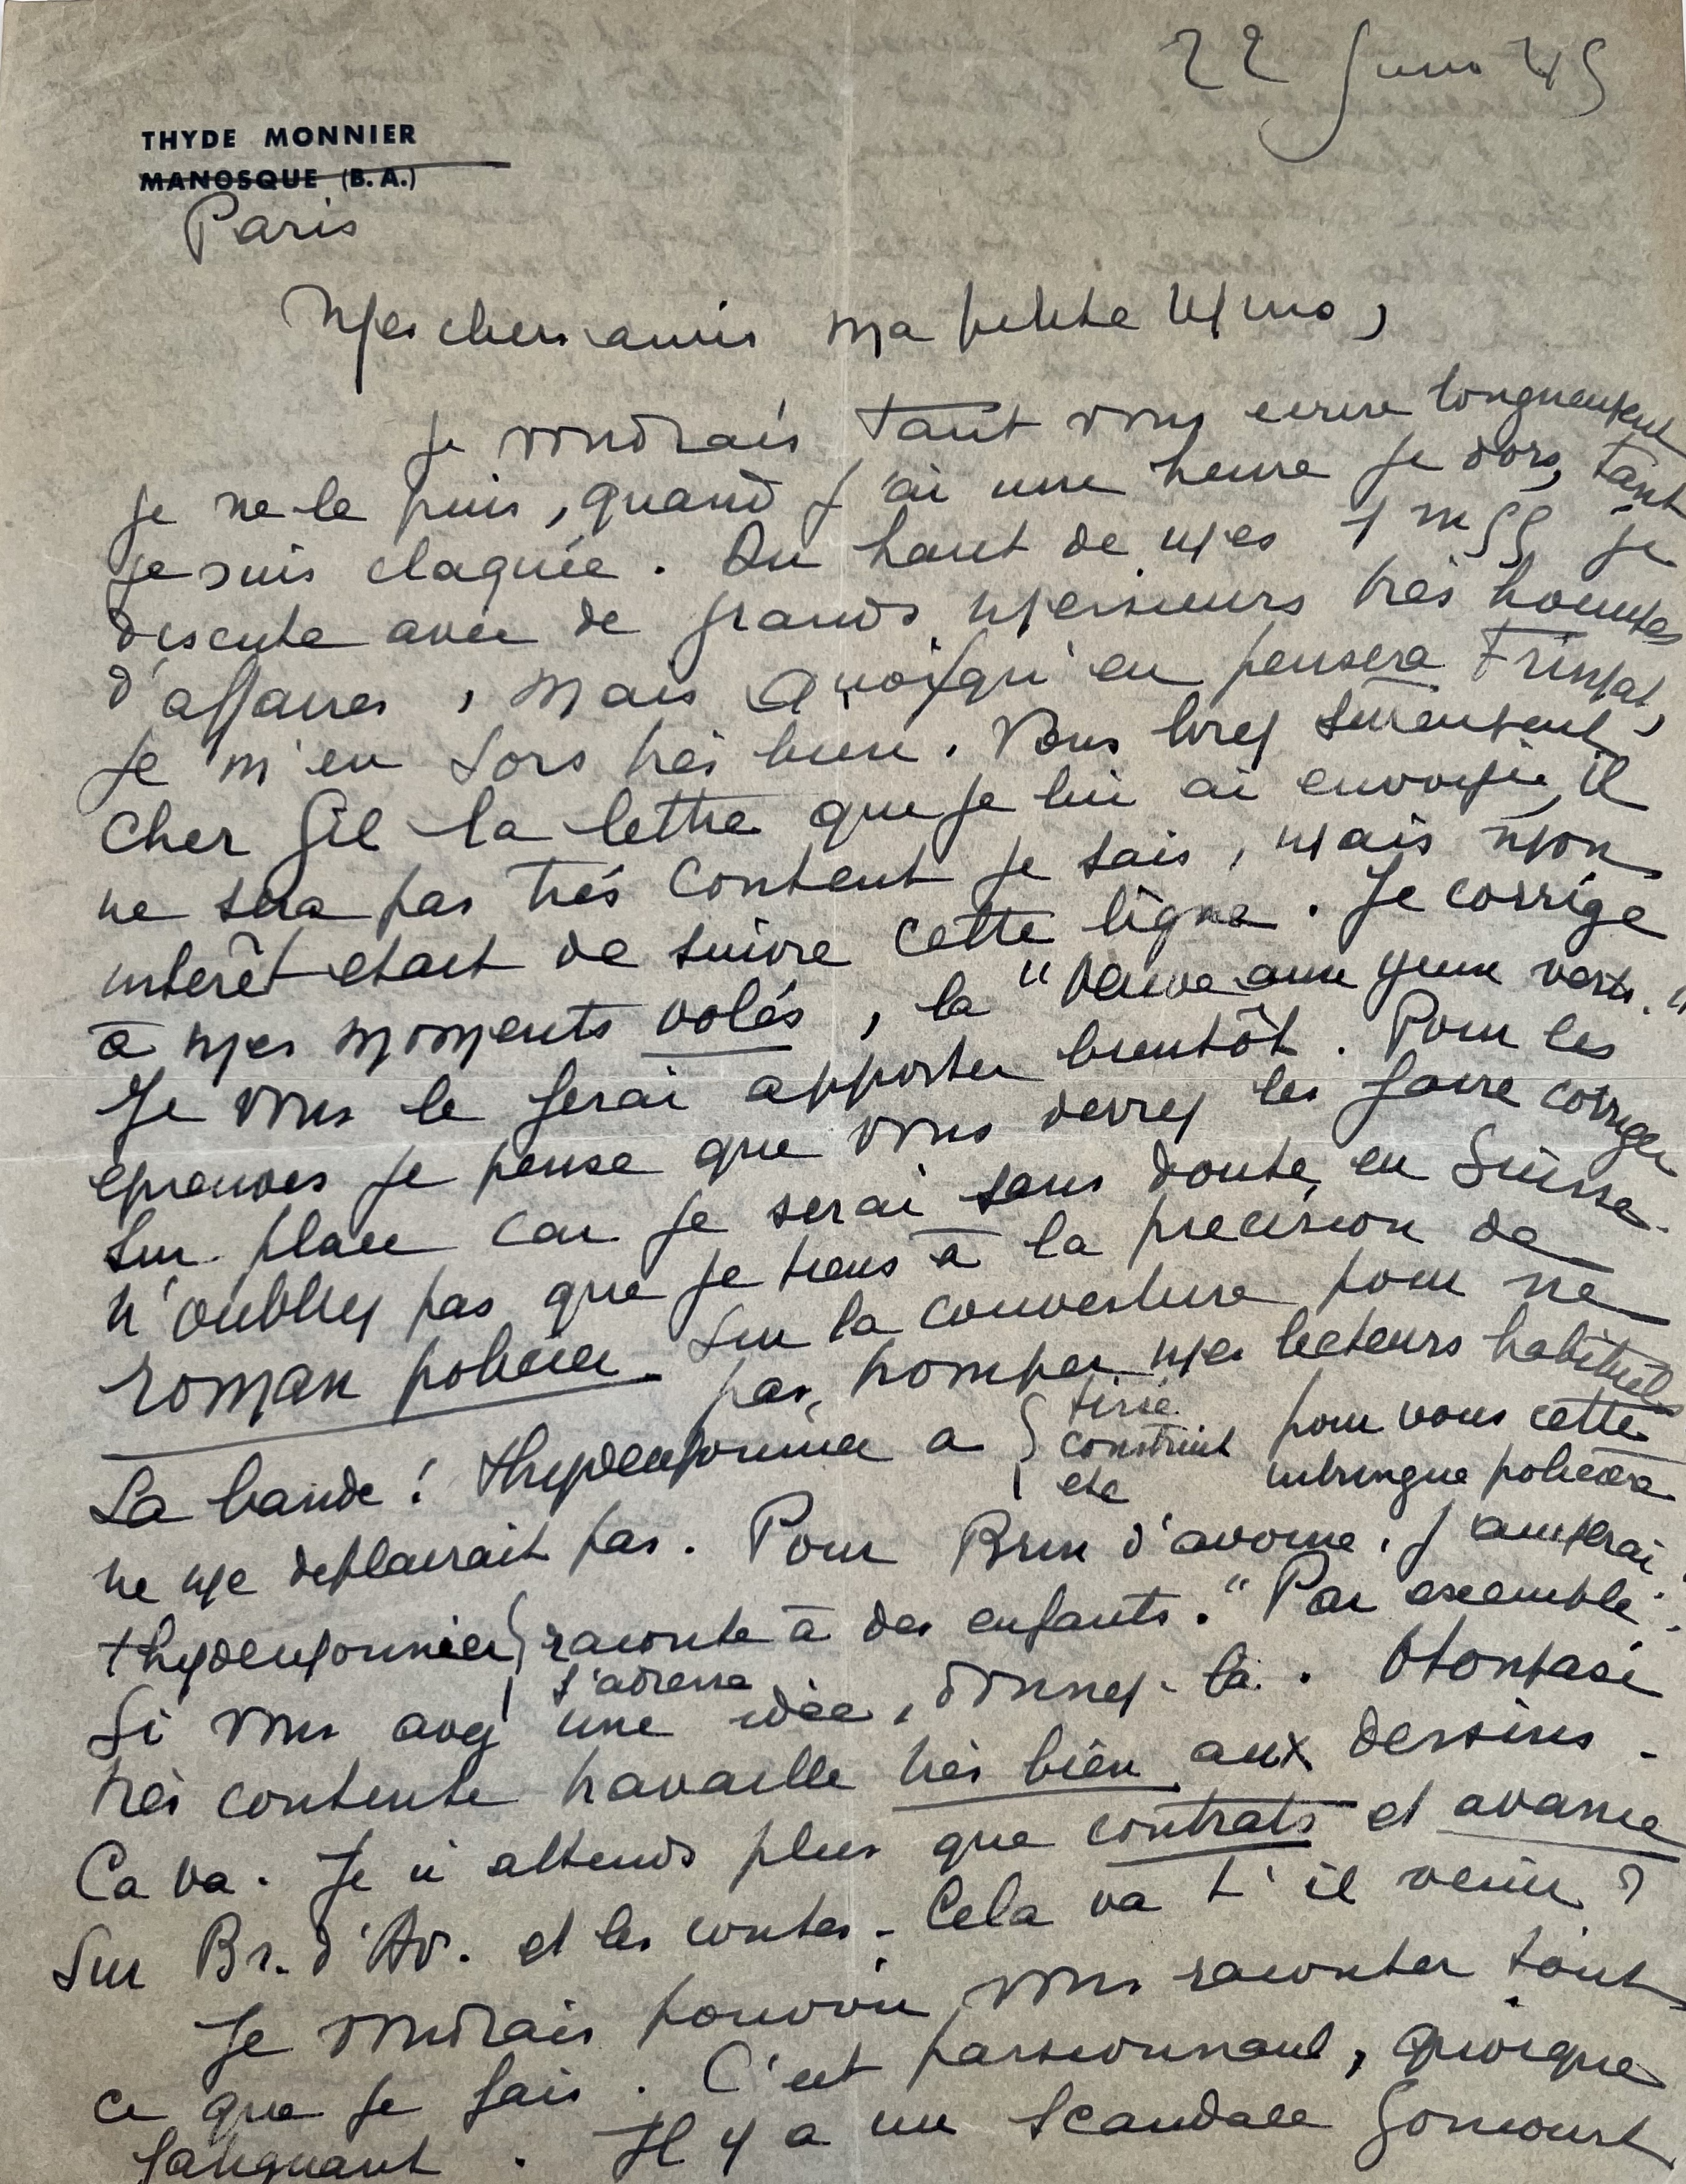 22 Juin 45
THYDE MONNIER
MANOSQUE (B. A.)
Paris
Mes chers amis ma petite
je voudrais tant vous ecrire longuement
je ne le puis, quand j'ai une heure je dors, tant
je suis claquée. Du haut de mes 1 m 55 je
discute avec de grands messieurs très hommes
d'affaires, mais quoiqu'en pensera
je m'en sors très bien. Vous lirez surement
cher Gil la lettre que je lui ai envoyée, il
ne sera pas trés content je sais, mais mon
interêt etait de suivre cette ligne. Je corrige
à mes moments volés, la "Veuve aux yeux verts."
Je vous le ferai apporter bientôt. Pour les
epreuves je pense que vous devrez les faire corriger
sur place car je serai sans doute en Suisse.
N'oubliez pas que je tiens à la precision de
roman policier sur la couverture pour ne
pas tromper mes lecteurs habituels
La bande : thydemonnier a { tissé
construit
etc
pour vous cette
intringue policière
ne me deplairait pas. Pour Brin d'avoine, j'aimerai :
thydemonnier { raconte à des enfants." Par exemple.
s'adresse
Si vous avez une idée, donnez-la.
très contente travaille très bien aux dessins.
Ca va. Je n'attends plus que contrats et avance
sur Br. d'Av. et les contes. Cela va t'il venir ?
Je voudrais pouvoir vous raconter tout
ce que je fais. C'est passionnant, quoique
fatiguant. Il y a un scandale Goncourt